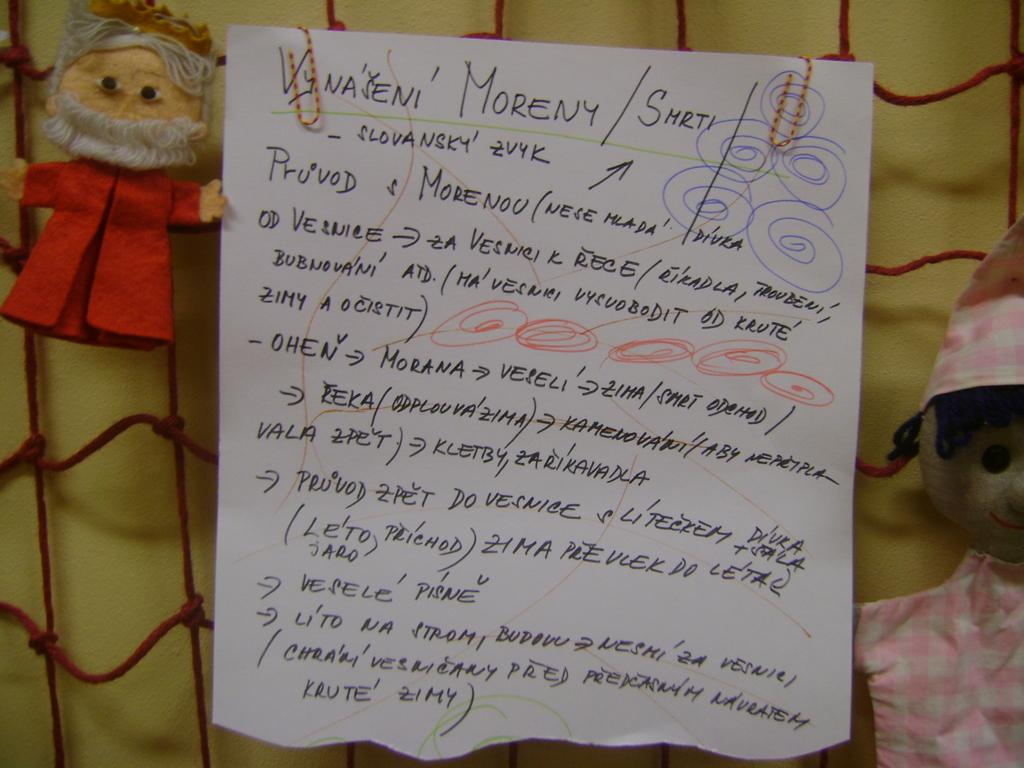 VYNÁŠENÍ MORENY / SMRTI /
- SLOVANSKÝ ZVYK
PRŮVOD S MORENOU (NESE MLADÁ DÍVKA
OD VESNICE → ZA VESNICI K ŘECE (ŘÍKADLA, TROUBENÍ,
BUBNOVÁNÍ ATD. (MÁ VESNICI VYSVOBODIT OD KRUTÉ
ZIMY A OČISTIT)
- OHEŇ → MORANA → VESELÍ → ZIMA/SMRT ODCHOD)
→ ŘEKA (ODPLOUVÁ ZIMA) → KAMENOVÁNÍ (ABY NEPŘIPLA-
VALA ZPĚT) → KLETBY, ZAŘÍKAVADLA
→ PRŮVOD ZPĚT DO VESNICE S LÍTEČKEM DÍVKA
(LÉTO, PŘÍCHOD) ZIMA PŘEVLEK DO LÉTA)
JARO
→ VESELÉ PÍSNĚ
→ LÍTO NA STROM, BUDOVU → NESMÍ ZA VESNICI
(CHRÁNÍ VESNIČANY PŘED PŘEDČASNÝM NÁVRATEM
KRUTÉ ZIMY)